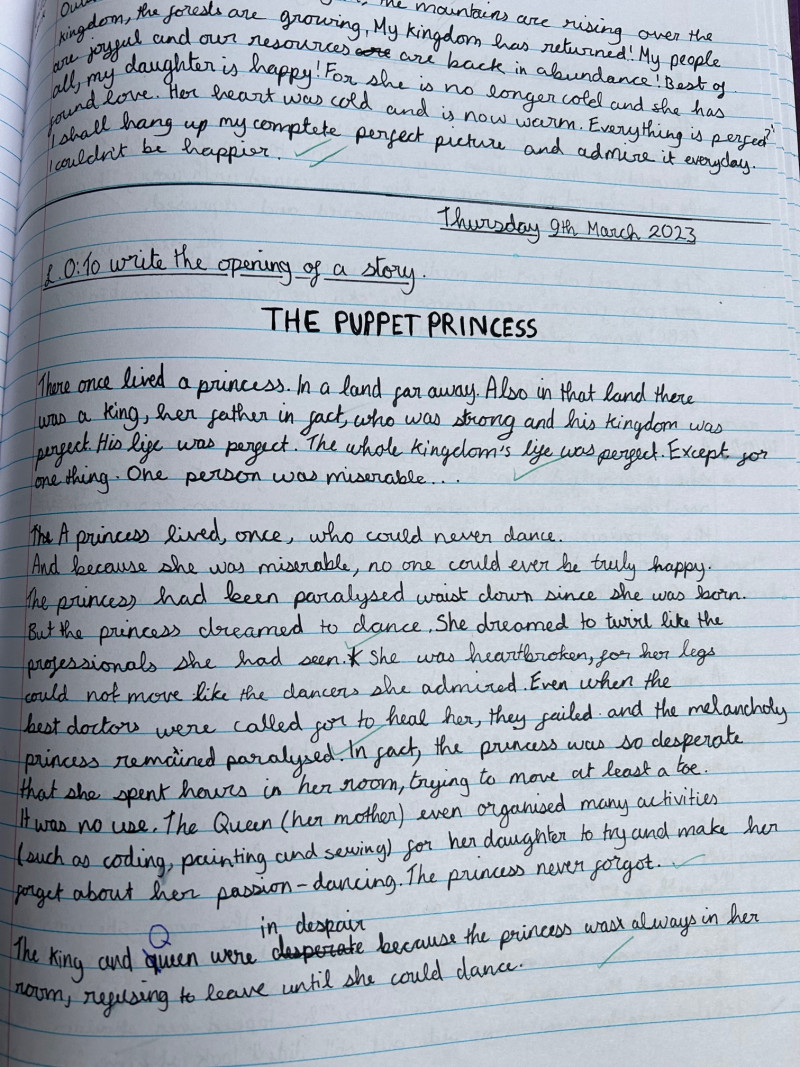 the mountains are rising over the
kingdom, the forests are growing, My kingdom has returned! My people
are joyful and our resources are are back in abundance! Best of
all, my daughter is happy! For she is no longer cold and she has
found love. Her heart was cold and is now warm. Everything is perfect!
I shall hang up my complete perfect picture and admire it everyday.
I couldn't be happier.
Thursday 9th March 2023
L.O: To write the opening of a story.
THE PUPPET PRINCESS
There once lived a princess. In a land far away. Also in that land there
was a King, her father in fact, who was strong and his kingdom was
perfect. His life was perfect. The whole kingdom's life was perfect. Except for
one thing. One person was miserable...
The A princess lived, once, who could never dance.
And because she was miserable, no one could ever be truly happy.
The princess had been paralysed waist down since she was born.
But the princess dreamed to dance. She dreamed to twirl like the
professionals she had seen.* She was heartbroken, for her legs
could not move like the dancers she admired. Even when the
best doctors were called for to heal her, they failed and the melancholy
princess remained paralysed. In fact, the princess was so desperate
that she spent hours in her room, trying to move at least a toe.
It was no use. The Queen (her mother) even organised many activities
(such as coding, painting and sewing) for her daughter to try and make her
forget about her passion - dancing. The princess never forgot.
in despair
The King and Queen were desperate because the princess was always in her
room, refusing to leave until she could dance.